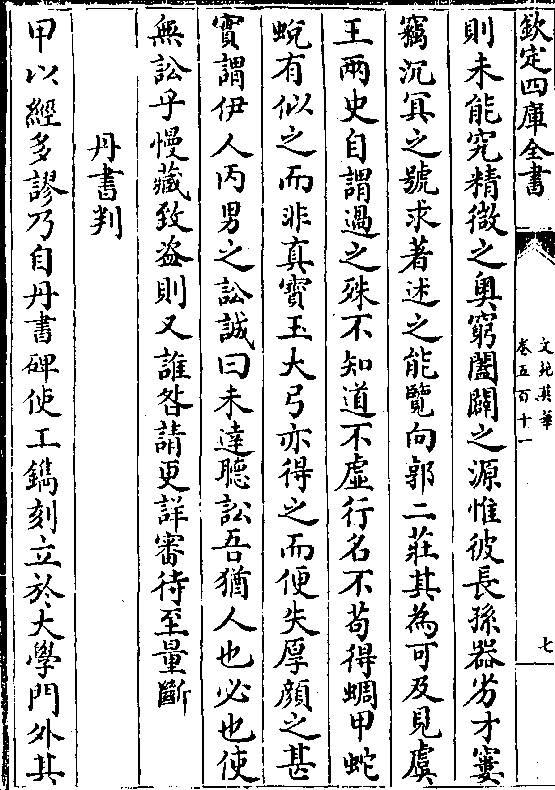 欽定四庫全書
文苑英華
卷五百十一
七
則未能究精微之奥窮闔闢之源惟彼長孫器劣才寠
竊沉冥之號求著述之能覽向郭二莊其為可及見虞
王兩史自謂過之殊不知道不虚行名不苟得蜩甲蛇
蛻有似之而非真寳玉大弓亦得之而便失厚顔之甚
實謂伊人丙男之訟誠曰未達聽訟吾猶人也必也使
無訟乎慢藏致盗則又誰咎請更詳審待至量斷
丹書判
甲以經多謬乃自丹書碑使工鐫刻立於大學門外其